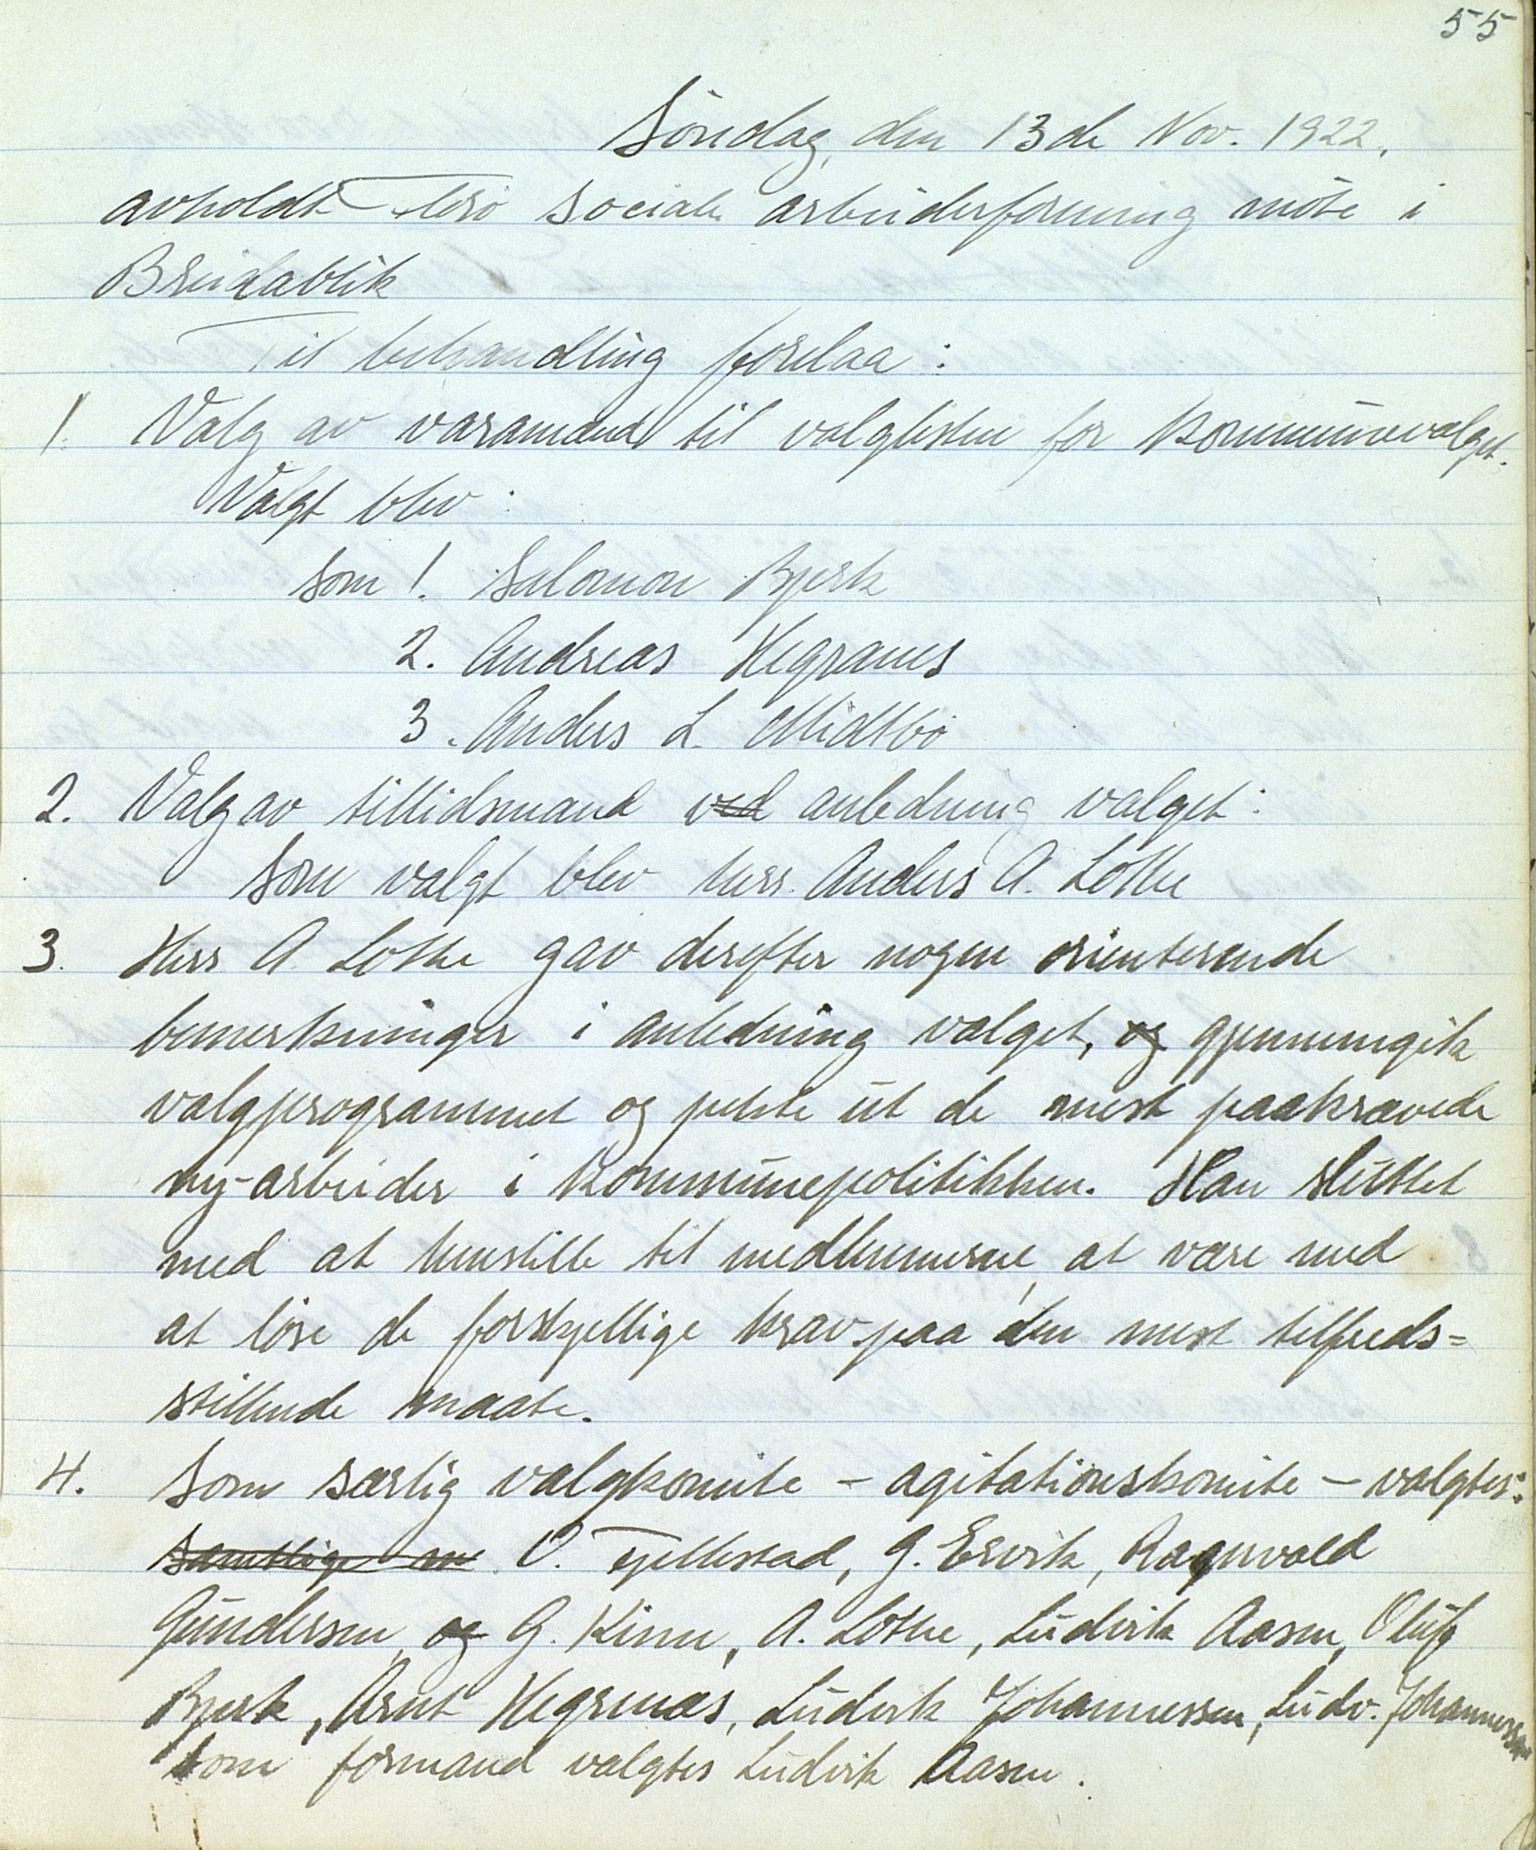 55
Søndag, den 13de Nov. 1922.
avholdt Florø sociale arbeiderforening møte i
Breidablik
Til behandling forelaa :
1. Valg av varamænd til valglisten for kommunevalget.
Valgt blev :
som 1. Salomon Bjerk
2. Andreas Hegranes
3. Anders L. Midtbø
2. Valg av tillidsmand ved anledning valget :
Som valgt blev herr. Anders A. Lothe
3. Herr A Lothe gav derefter nogen orienterende
bemerkninger i anledning valget, og gjennemgik
valgprogrammet og pekte ut de mest paakrævede
ny-arbeider i kommunepolitikken. Han sluttet
med at henstille til medlemmerne, at være med
at løse de forskjellige krav paa den mest tilfreds=
stillende maate.
4. Som særlig valgkomite – agitationskomite – valgtes :
samtlige av O. Fjellestad, G. Ervik, Ragnvald
Gundersen, og G. Kinn, A. Lothe, Ludvik Aasen, Oluf
Bjerk, Arnt Hegrenæs, Ludvik Johannessen, Ludv. Johannessen
som formand valgtes Ludvik Aasen.